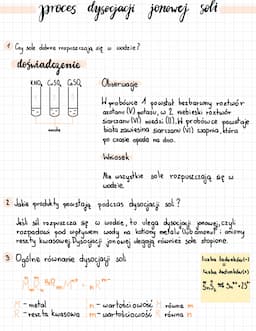 proces dysocjacji jonowej soli
1 Czy sole dobrze rozpuszczają się w wodzie?
doświadczenie
KNO₃ CuSO₄ CaSO₄
woda
Obserwacje
W probówce 1 powstał bezbarwny roztwór
azotanu (V) potasu, w 2 niebieski roztwór
siarczanu (VI) miedzi (II). W probówce powstaje
biała zawiesina siarczanu (VI) wapnia, która
po czasie opada na dno.
Wniosek
Nie wszystkie sole rozpuszczają się w
wodzie.
2 Jakie produkty powstają podczas dysocjacji soli?
Jeśli sól rozpuszcza się w wodzie, to ulega dysocjacji jonowej, czyli
rozpadowi pod wpływem wody na kationy metalu (lub amonu) i aniony
reszty kwasowej. Dysocjacji jonowej ulegają również sole stopione.
3 Ogólne równanie dysocjacji soli
liczba ładunków(+)
=
liczba ładunków(-)
M - metal
R - reszta kwasowa
n - wartościowość M równa n
m - wartościowość R równa m